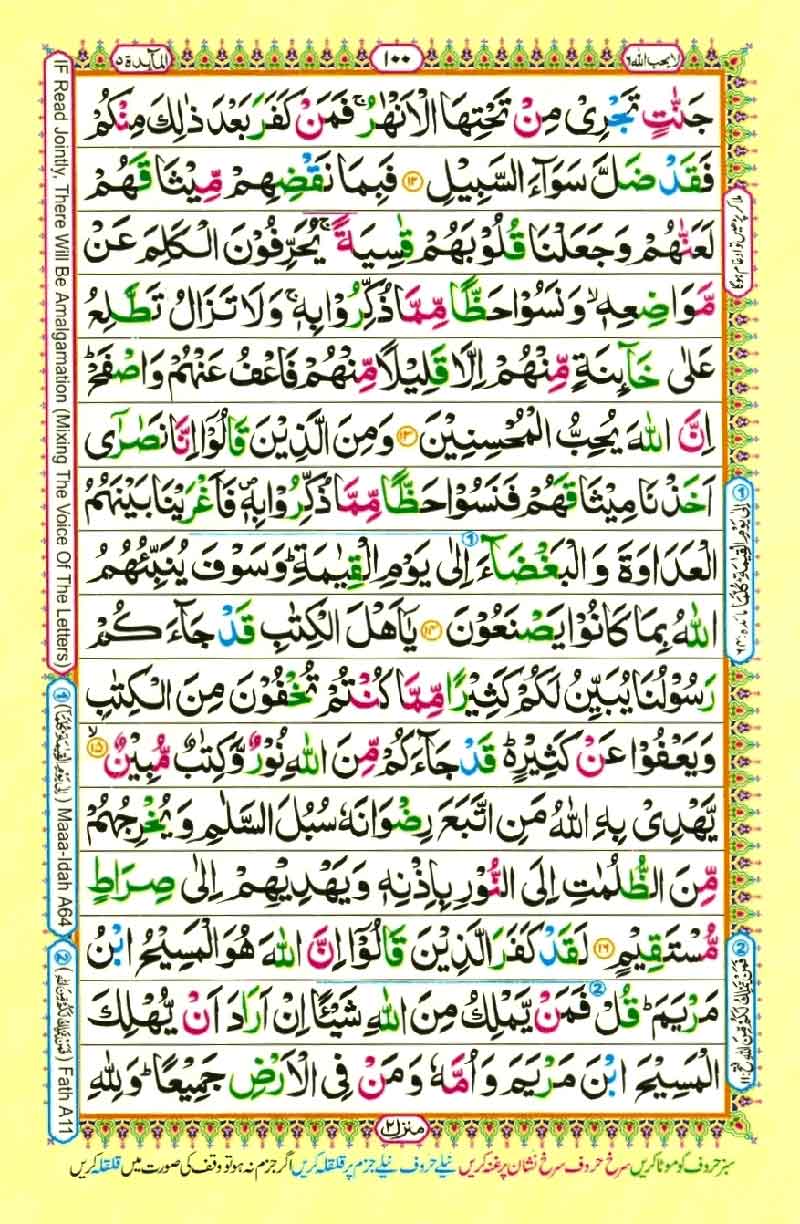 لا یحب الله ۶
۱۰۰
المآىِٕدة ۵
جَنّٰتٍ تَجْرِیْ مِنْ تَحْتِهَا الْاَنْهٰرُ ۚ فَمَنْ كَفَرَ بَعْدَ ذٰلِكَ مِنْكُمْ
فَقَدْ ضَلَّ سَوَآءَ السَّبِیْلِ ۝۱۲ فَبِمَا نَقْضِهِمْ مِّیْثَاقَهُمْ
لَعَنّٰهُمْ وَ جَعَلْنَا قُلُوْبَهُمْ قٰسِیَةً ۚ یُحَرِّفُوْنَ الْكَلِمَ عَنْ
مَّوَاضِعِهٖ ۙ وَ نَسُوْا حَظًّا مِّمَّا ذُكِّرُوْا بِهٖ ۚ وَ لَا تَزَالُ تَطَّلِعُ
عَلٰی خَآىِٕنَةٍ مِّنْهُمْ اِلَّا قَلِیْلًا مِّنْهُمْ فَاعْفُ عَنْهُمْ وَ اصْفَحْ ؕ
اِنَّ اللّٰهَ یُحِبُّ الْمُحْسِنِیْنَ ۝۱۳ وَ مِنَ الَّذِیْنَ قَالُوْۤا اِنَّا نَصٰرٰۤی
اَخَذْنَا مِیْثَاقَهُمْ فَنَسُوْا حَظًّا مِّمَّا ذُكِّرُوْا بِهٖ ۪ فَاَغْرَیْنَا بَیْنَهُمُ
الْعَدَاوَةَ وَ الْبَغْضَآءَ اِلٰی یَوْمِ الْقِیٰمَةِ ؕ وَ سَوْفَ یُنَبِّئُهُمُ
اللّٰهُ بِمَا كَانُوْا یَصْنَعُوْنَ ۝۱۴ یٰۤاَهْلَ الْكِتٰبِ قَدْ جَآءَكُمْ
رَسُوْلُنَا یُبَیِّنُ لَكُمْ كَثِیْرًا مِّمَّا كُنْتُمْ تُخْفُوْنَ مِنَ الْكِتٰبِ
وَ یَعْفُوْا عَنْ كَثِیْرٍ ؕ۬ قَدْ جَآءَكُمْ مِّنَ اللّٰهِ نُوْرٌ وَّ كِتٰبٌ مُّبِیْنٌ ۝۱۵ۙ
یَّهْدِیْ بِهِ اللّٰهُ مَنِ اتَّبَعَ رِضْوَانَهٗ سُبُلَ السَّلٰمِ وَ یُخْرِجُهُمْ
مِّنَ الظُّلُمٰتِ اِلَی النُّوْرِ بِاِذْنِهٖ وَ یَهْدِیْهِمْ اِلٰی صِرَاطٍ
مُّسْتَقِیْمٍ ۝۱۶ لَقَدْ كَفَرَ الَّذِیْنَ قَالُوْۤا اِنَّ اللّٰهَ هُوَ الْمَسِیْحُ ابْنُ
مَرْیَمَ ؕ قُلْ فَمَنْ یَّمْلِكُ مِنَ اللّٰهِ شَیْـًٔا اِنْ اَرَادَ اَنْ یُّهْلِكَ
الْمَسِیْحَ ابْنَ مَرْیَمَ وَ اُمَّهٗ وَ مَنْ فِی الْاَرْضِ جَمِیْعًا ؕ وَ لِلّٰهِ
منزل ۲
سبز حروف کو موٹا کریں سرخ حروف سرخ نشان پر غنہ کریں نیلے حروف نیلے جزم پر قلقلہ کریں اگر جزم نہ ہو تو وقف کی صورت میں قلقلہ کریں
ملا کر پڑھیں تو ادغام ہوگا
① اِلٰی یَوْمِ الْقِیٰمَةِ كُلَّمَا
② فَمَنْ یَّمْلِكُ لَكُمْ مِّنَ اللّٰهِ فتح:۱۱
IF Read Jointly, There Will Be Amalgamation (Mixing The Voice Of The Letters)
① (اِلٰی یَوْمِ الْقِیٰمَةِ كُلَّمَا) Maaa-Idah A64
② (فَمَنْ یَّمْلِكُ لَكُمْ مِّنَ اللّٰهِ) Fath A11